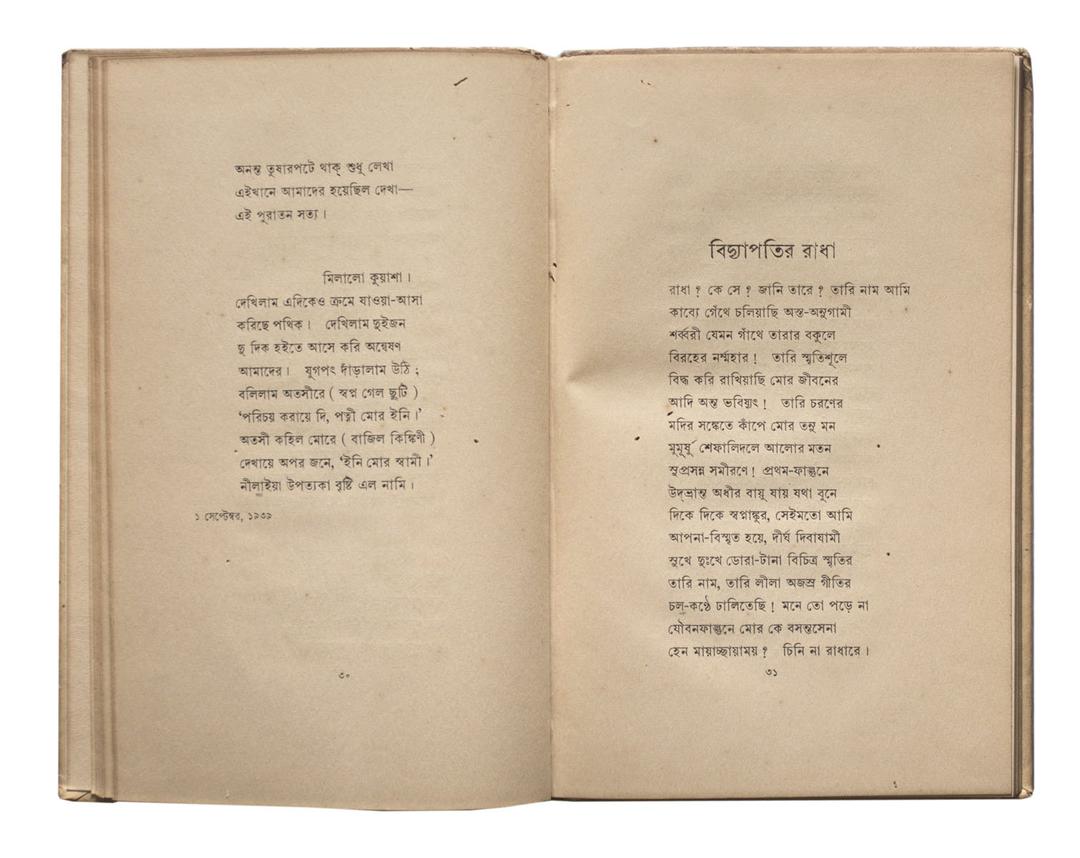 অনন্ত তুষারপটে থাক্ শুধু লেখা
এইখানে আমাদের হয়েছিল দেখা—
এই পুরাতন সত্য।
মিলালো কুয়াশা।
দেখিলাম এদিকেও ক্রমে যাওয়া-আসা
করিছে পথিক। দেখিলাম দুইজন
দু দিক হইতে আসে করি অন্বেষণ
আমাদের। যুগপৎ দাঁড়ালাম উঠি;
বলিলাম অতসীরে (স্বপ্ন গেল ছুটি)
‘পরিচয় করায়ে দি, পত্নী মোর ইনি।’
অতসী কহিল মোরে (বাজিল কিঙ্কিণী)
দেখায়ে অপর জনে, ‘ইনি মোর স্বামী।’
নীলাইয়া উপত্যকা বৃষ্টি এল নামি।
১ সেপ্টেম্বর, ১৯৩৯
৩০
বিদ্যাপতির রাধা
রাধা? কে সে? জানি তারে? তারি নাম আমি
কাব্যে গেঁথে চলিয়াছি অস্ত-অনুগামী
শর্ব্বরী যেমন গাঁথে তারার বকুলে
বিরহের নর্ম্মহার! তারি স্মৃতিশূলে
বিদ্ধ করি রাখিয়াছি মোর জীবনের
আদি অন্ত ভবিষ্যৎ! তারি চরণের
মদির সঙ্কেতে কাঁপে মোর তনু মন
মুমূর্ষু শেফালিদলে আলোর মতন
সুপ্রসন্ন সমীরণে! প্রথম-ফাল্গুনে
উদ্‌ভ্রান্ত অধীর বায়ু যায় যথা বুনে
দিকে দিকে স্বপ্নাঙ্কুর, সেইমতো আমি
আপনা-বিস্মৃত হয়ে, দীর্ঘ দিবাযামী
সুখে দুঃখে ডোরা-টানা বিচিত্র স্মৃতির
তারি নাম, তারি লীলা অজস্র গীতির
চল-কণ্ঠে ঢালিতেছি! মনে তো পড়ে না
যৌবনফাল্গুনে মোর কে বসন্তসেনা
হেন মায়াচ্ছায়াময়? চিনি না রাধারে।
৩১